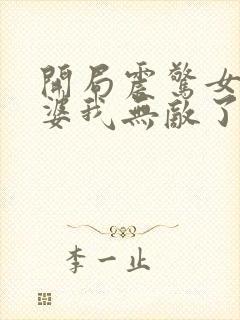 開局震驚女
婆我無敵了
李一止